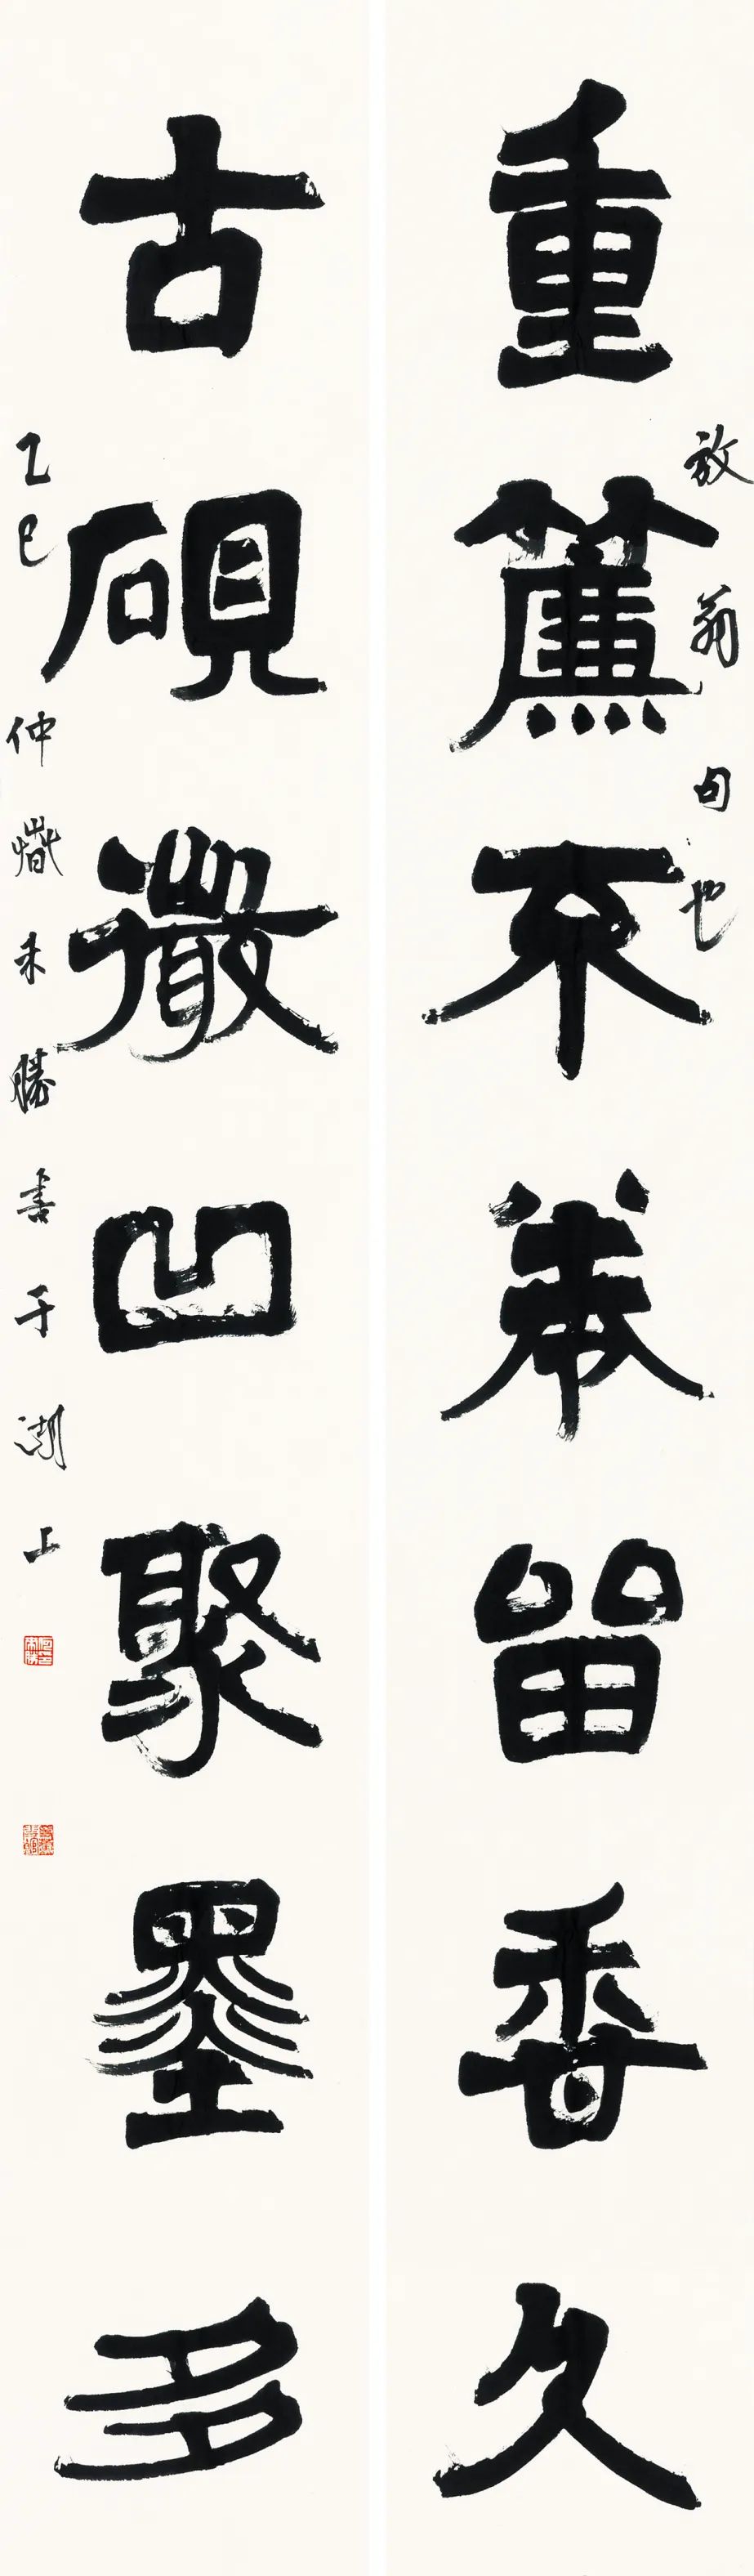 重簾不卷留香久
放翁句也
古硯微凹聚墨多
乙巳仲歲未勝書于湖上